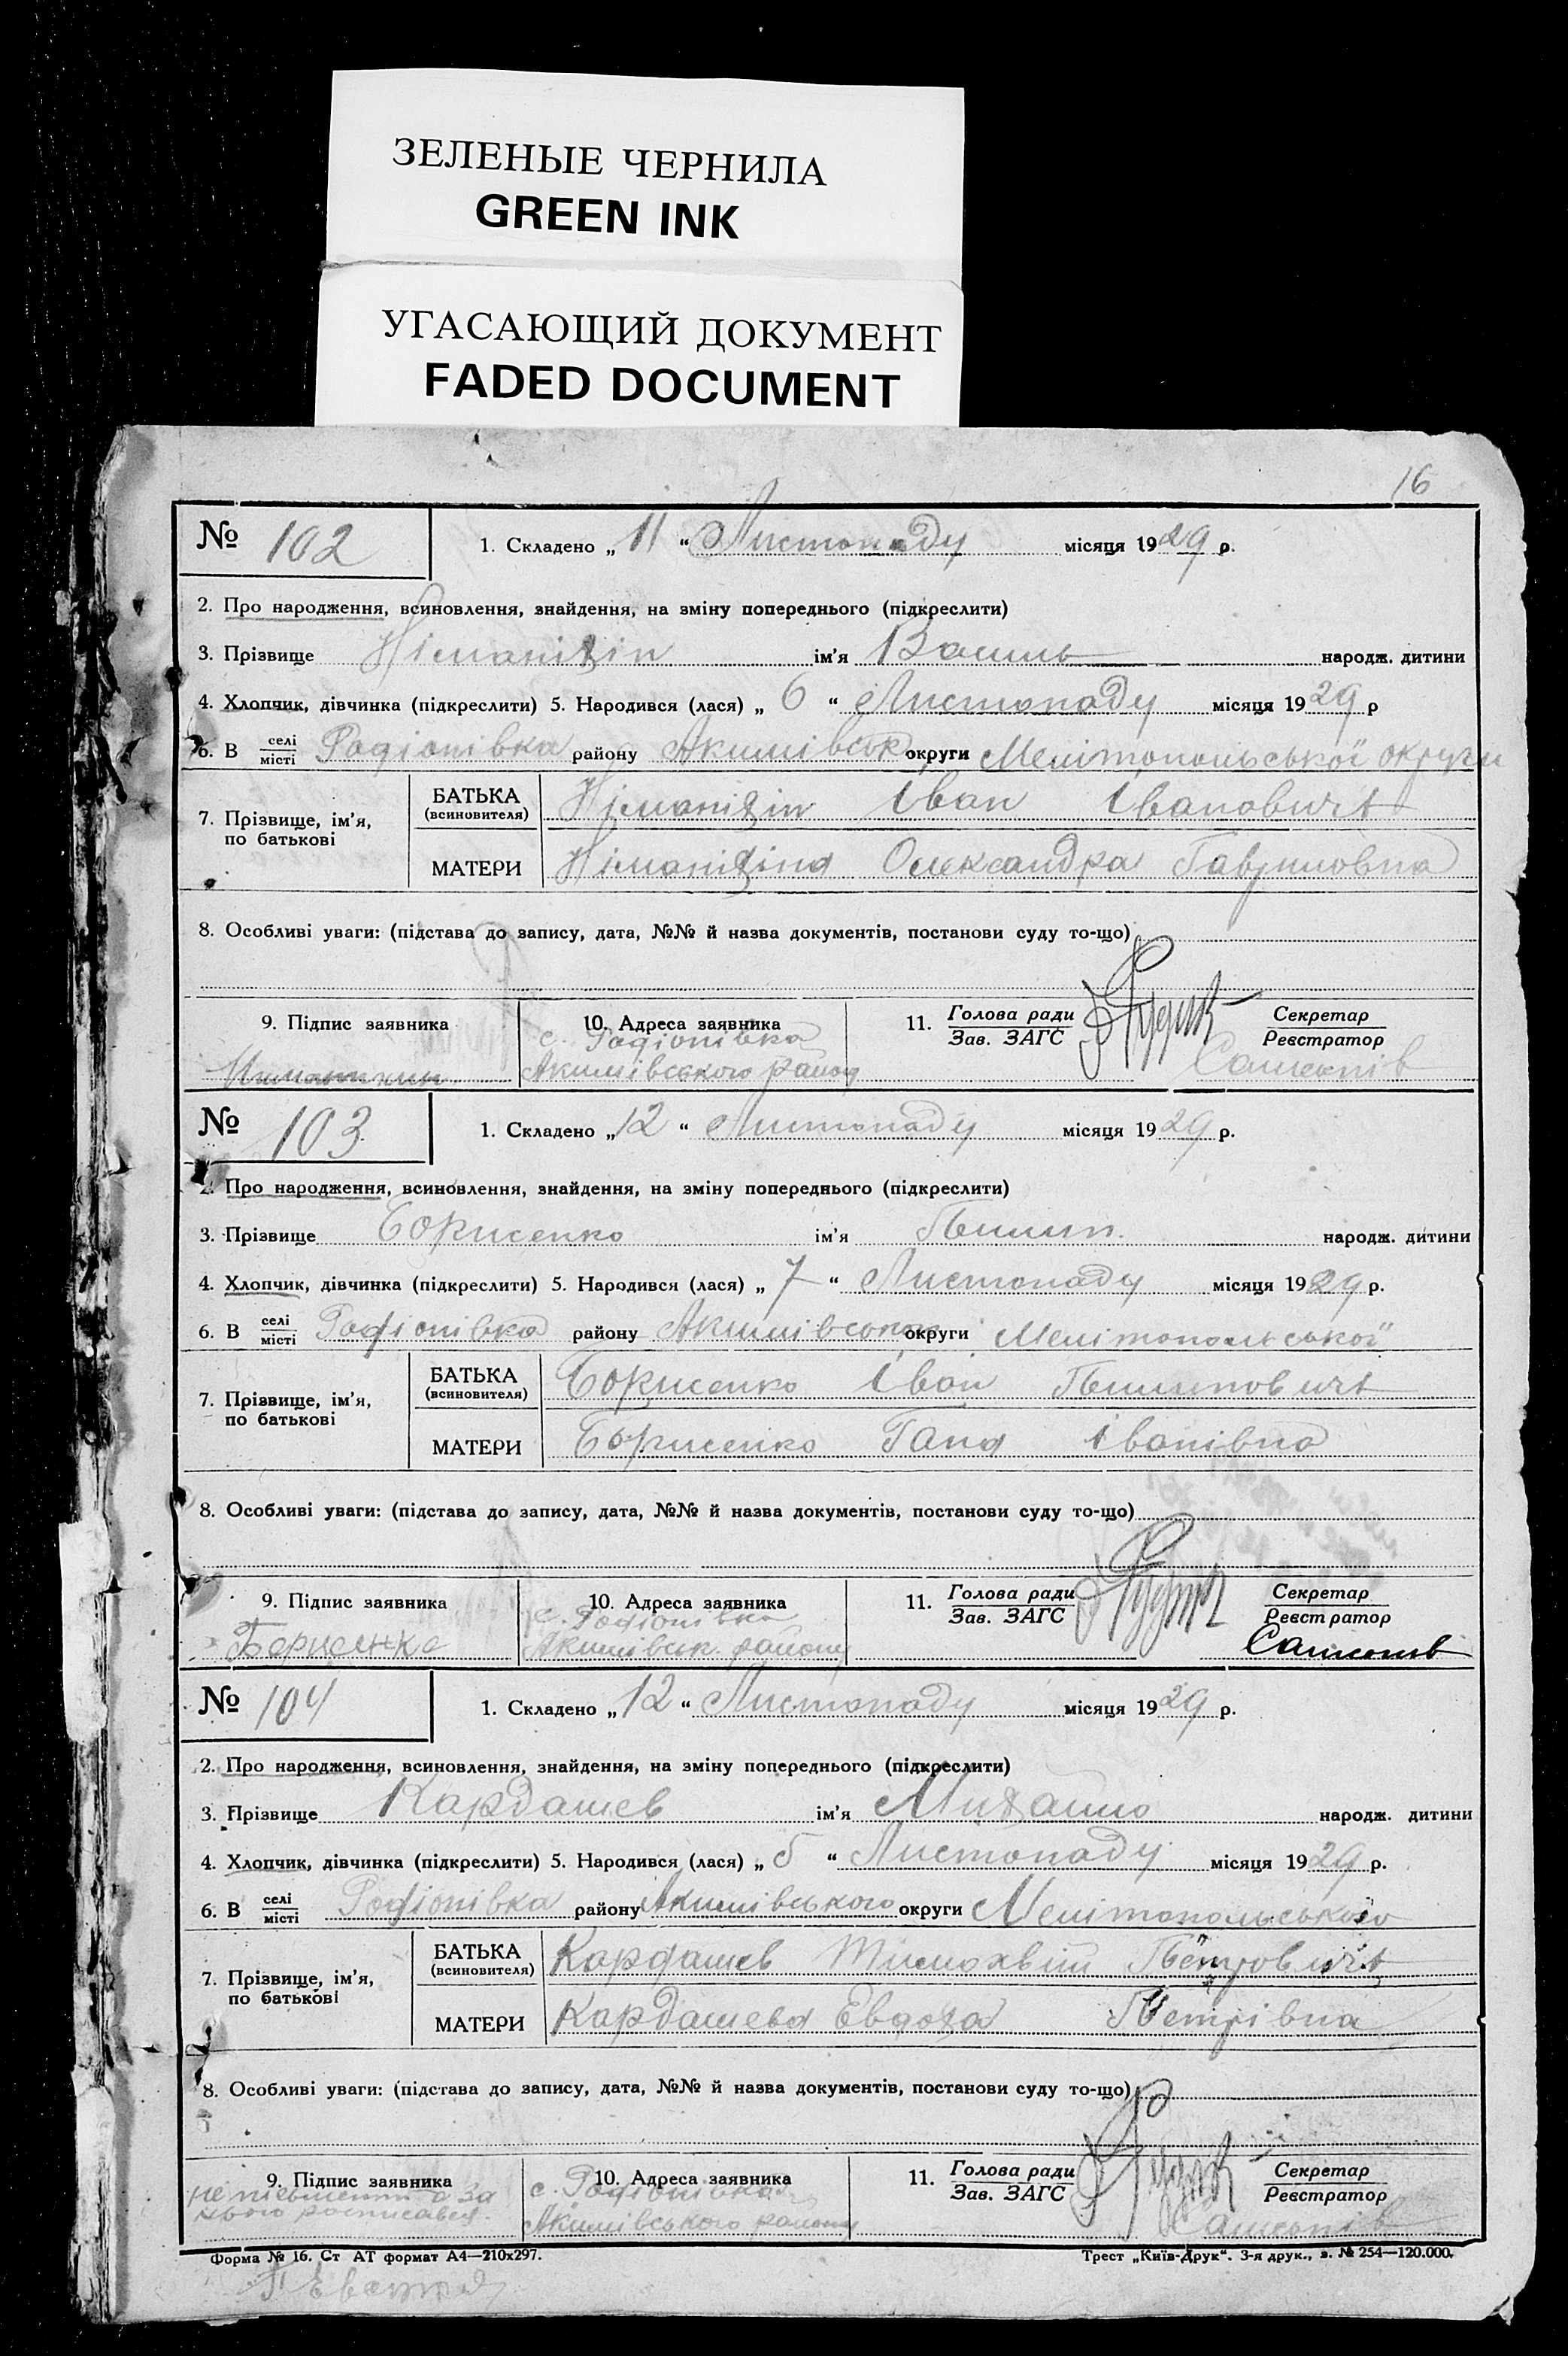 ЗЕЛЕНЫЕ ЧЕРНИЛА
GREEN INK
УГАСАЮЩИЙ ДОКУМЕНТ
FADED DOCUMENT
16
№ 102
1. Складено „ 11 “ Листопаду місяця 1929 р.
2. Про народження, всиновлення, знайдення, на зміну попереднього (підкреслити)
3. Прізвище ім'я Василь народж. дитини
4. Хлопчик, дівчинка (підкреслити) 5. Народився (лася) „ 6 “ Листопаду місяця 1929 р
6. В селі місті Радіонівка району Акимівськ округи Мелітопольської округи
7. Прізвище, ім'я, по батькові
БАТЬКА (всиновителя) Іван Івановичь
МАТЕРИ Олександра Гавриловна
8. Особливі уваги: (підстава до запису, дата, №№ й назва документів, постанови суду то-що)
9. Підпис заявника
10. Адреса заявника
с. Радіонівка
Акимівського району
11. Голова ради Зав. ЗАГС
Секретар Реєстратор
№ 103
1. Складено „ 12 “ Листопаду місяця 1929 р.
2. Про народження, всиновлення, знайдення, на зміну попереднього (підкреслити)
3. Прізвище Борисенко ім'я Пилип народж. дитини
4. Хлопчик, дівчинка (підкреслити) 5. Народився (лася) „ 7 “ Листопаду місяця 1929 р.
6. В селі місті Родіонівка району Акимівського округи Мелітопольської
7. Прізвище, ім'я, по батькові
БАТЬКА (всиновителя) Борисенко Іван Пилиповичь
МАТЕРИ Борисенко Гана Іванівна
8. Особливі уваги: (підстава до запису, дата, №№ й назва документів, постанови суду то-що)
9. Підпис заявника
Борисенко
10. Адреса заявника
с. Родіонівка
Акимівськ. району
11. Голова ради Зав. ЗАГС
Секретар Реєстратор
№ 104
1. Складено „ 12 “ Листопаду місяця 1929 р.
2. Про народження, всиновлення, знайдення, на зміну попереднього (підкреслити)
3. Прізвище Кардашев ім'я Михайло народж. дитини
4. Хлопчик, дівчинка (підкреслити) 5. Народився (лася) „ 5 “ Листопаду місяця 1929 р.
6. В селі місті Родіонівка району Акимівського округи Мелітопольського
7. Прізвище, ім'я, по батькові
БАТЬКА (всиновителя) Кардашев Тимохвій Петровичь
МАТЕРИ Кардашева Евдоха Петрівна
8. Особливі уваги: (підстава до запису, дата, №№ й назва документів, постанови суду то-що)
9. Підпис заявника
а за
нього росписався
10. Адреса заявника
с. Родіонівка
Акимівського району
11. Голова ради Зав. ЗАГС
Секретар Реєстратор
Форма № 16. Ст АТ формат А4—210х297.
Трест „Київ-Друк“. 3-я друк., з. № 254—120.000.